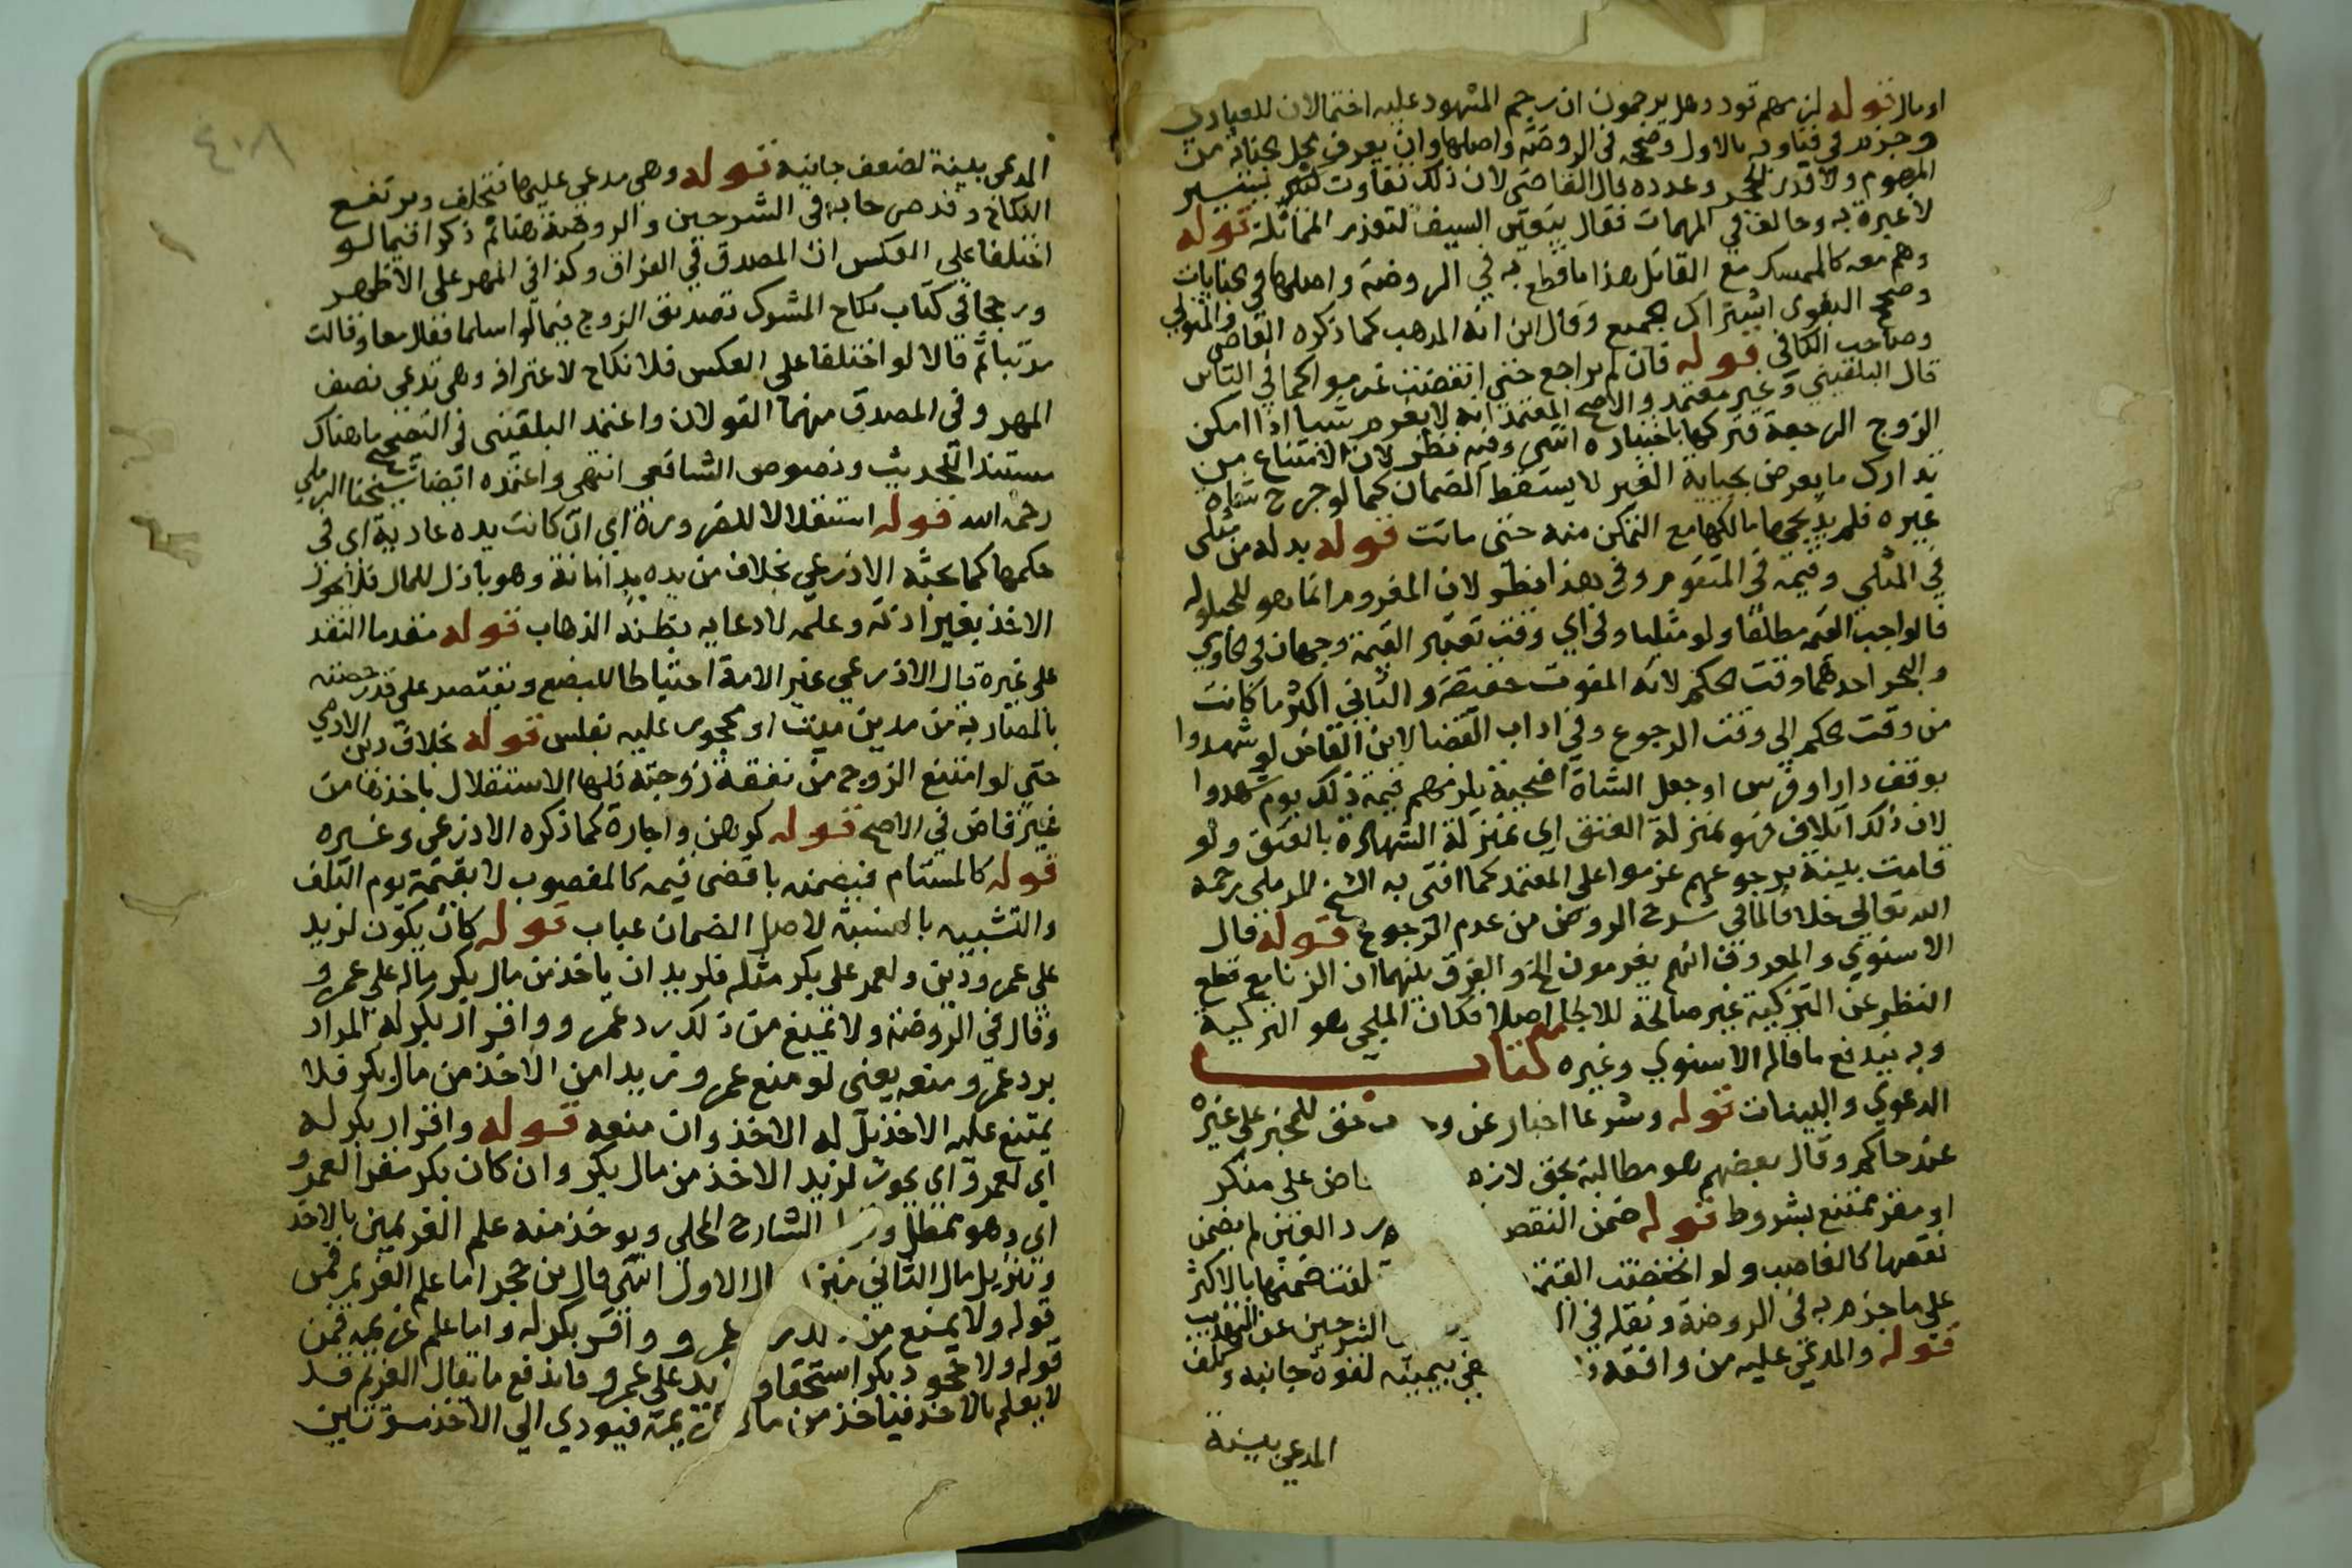 او مال قوله لزمهم قود وهل يرجمون ان رجم المشهود عليه احتمالان للعبادي
وجزم في فتاويه بالاول وصححه في الروضة واصلها وان يعرف محل الجناية من
المرجوم ولا قدر الحجر وعدده قال القاضي لان ذلك تفاوت يسير
لا عبرة به وخالف في المهمات فقال يتعين السيف لتعذر المماثلة قوله
وهم معه كالممسك مع القاتل هذا ما قطع به في الروضة واصلها في الجنايات
وصحح البغوي اشتراك الجميع وقال انه المذهب كما ذكره القاضي والمتولي
وصاحب الكافي قوله فان لم يراجع حتى انقضت غرموا كما في البائن
قال البلقيني وغير معتمد والاصح المعتمد انه لا يغرم شيا اذا امكن
الزوج الرجعة فتركها باختياره انتهى وفيه نظر لان الامتناع من
تدارك ما يعرض بجناية الغير لا يسقط الضمان كما لو جرح شاة
غيره فلم يذبحها مالكها مع التمكن منه حتى ماتت قوله بدله من مثلي
في المثلي وقيمة في المتقوم وفي هذا نظر لان المغروم انما هو للحيلولة
فالواجب القيمة مطلقا ولو مثليا وفي اي وقت تعتبر القيمة وجهان في الحاوي
والبحر احدهما وقت الحكم لانه المفوت حقيقة والثاني اكثر ما كانت
من وقت الحكم الى وقت الرجوع وفي اداب القضا لابن القاص لو شهدوا
بوقف دار او فرس او جعل الشاة اضحية يلزمهم قيمة ذلك يوم شهدوا
لان ذلك اتلاف فهو بمنزلة العتق اي بمنزلة الشهادة بالعتق ولو
قامت بينة برجوعهم غرموا على المعتمد كما افتى به الشيخ الرملي رحمه
الله تعالى خلافا لما في شرح الروض من عدم الرجوع قوله قال
الاسنوي والمعروف انهم يغرمون الخ والفرق بينهما ان الزنا مع قطع
النظر عن التزكية غير صالحة للالجا اصلا فكان الملجي هو التزكية
وبه يندفع ما قاله الاسنوي وغيره كتاب
الدعوي والبينات قوله وشرعا اخبار عن حق للمخبر على غيره
عند حاكم وقال بعضهم هو مطالبة بحق لازم على منكر
او مقر ممتنع بشروط قوله ضمن النقص رد العين لم يضمن
نقصها كالغاصب ولو انخفضت القيمة تلفت ضمنها بالاكثر
على ما جزم به في الروضة ونقله في الشرحين عن التهذيب
قوله والمدعي عليه من وافقه بيمينه لقوة جانبه وكلف
المدعي بينة
المدعي بينة لضعف جانبه قوله وهي مدعي عليها فتحلف ويرتفع
النكاح وقد صرحا به في الشرحين والروضة هنا ثم ذكرا فيما لو
اختلفا على العكس ان المصدق في الفراق وكذا في المهر على الاظهر
ورجحا في كتاب نكاح المشرك تصديق الزوج فيما لو اسلما فقال معا وقالت
مرتبا ثم قالا لو اختلفا على العكس فلا نكاح لاعترافه وهي تدعي نصف
المهر وفي المصدق منهما القولان واعتمد البلقيني في التصحيح ما هناك
مستندا للحديث ونصوص الشافعي انتهى واعتمده ايضا شيخنا الرملي
رحمه الله قوله استقلالا للضرورة اي ان كانت يده عادية اي في
حكمها كما بحثه الاذرعي بخلاف من يده يد امانة وهو باذل للمال فلا يجوز
الاخذ بغير اذنه وعلمه لا دعايه بظنه الذهاب قوله مقدما النقد
على غيره قال الاذرعي غير الامة احتياطا للبضع ويقتصر على قدر حصته
بالمضاربة من مدين ميت او محجور عليه بفلس قوله بخلاف دين الادمي
حتى لو امتنع الزوج من نفقة زوجته فلها الاستقلال باخذها من
غير قاض في الاصح قوله كرهن واجارة كما ذكره الاذرعي وغيره
قوله كالمستام فيضمنه باقصى قيمه كالمغصوب لا بقيمة يوم التلف
والتشبيه بالنسبة لاصل الضمان عباب قوله كان يكون لزيد
على عمرو دين ولعمرو على بكر مثله فلزيد ان ياخذ من مال بكر ماله على عمرو
وقال في الروضة ولا يمنع من ذلك رد عمرو واقرار بكر له المراد
برد عمرو منعه يعني لو منع عمرو زيدا من الاخذ من مال بكر فلا
يمتنع عليه الاخذ بل له الاخذ وان منعه قوله واقرار بكر له
اي لعمرو اي يجوز لزيد الاخذ من مال بكر وان كان بكر مقرا لعمرو
اي وهو مماطل الشارح المحلي ويوخذ منه علم الغريمين بالاخذ
وتنزيل مال الثاني منزلة مال الاول انتهى قال بن حجر اما علم الغريم فمن
قوله ولا يمنع من ذلك رد عمرو واقرار بكر له واما علم غريمه فمن
قوله ولا جحود بكر استحقاق زيد على عمرو فاندفع ما يقال الغريم قد
لا يعلم بالاخذ فياخذ من مال غريمه فيودي الى الاخذ مرتين